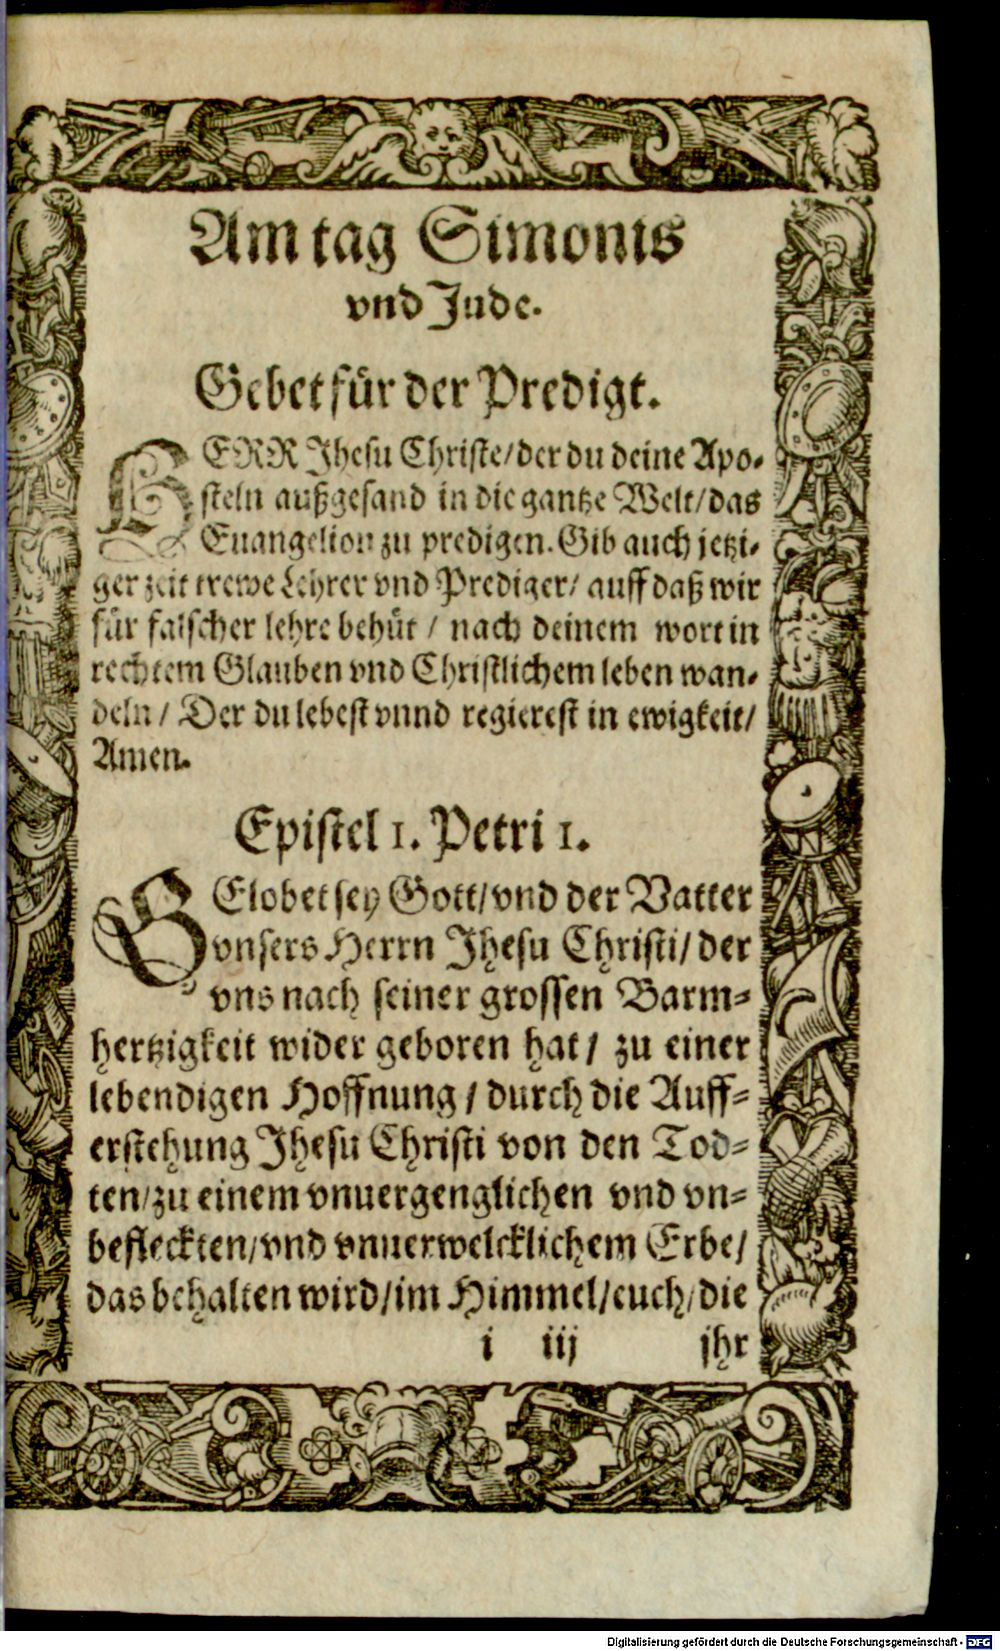 Am tag Simonis
vnd Jude.
Gebet für der Predigt.
HERR Jhesu Christe/der du deine Apo-
steln außgesand in die gantze Welt/das
Euangelion zu predigen. Gib auch jetzi-
ger zeit trewe Lehrer vnd Prediger/ auff daß wir
für falscher lehre behüt / nach deinem wort in
rechtem Glauben vnd Christlichem leben wan-
deln / Der du lebest vnnd regierest in ewigkeit/
Amen.
Epistel 1. Petri 1.
GElobet sey Gott/vnd der Vatter
vnsers Herrn Jhesu Christi/der
vns nach seiner grossen Barm-
hertzigkeit wider geboren hat / zu einer
lebendigen Hoffnung / durch die Auff-
erstehung Jhesu Christi von den Tod-
ten/zu einem vnuergenglichen vnd vn-
befleckten/vnd vnuerwelcklichem Erbe/
das behalten wird/im Himmel/euch/die
i iij jhr
Digitalisierung gefördert durch die Deutsche Forschungsgemeinschaft - DFG